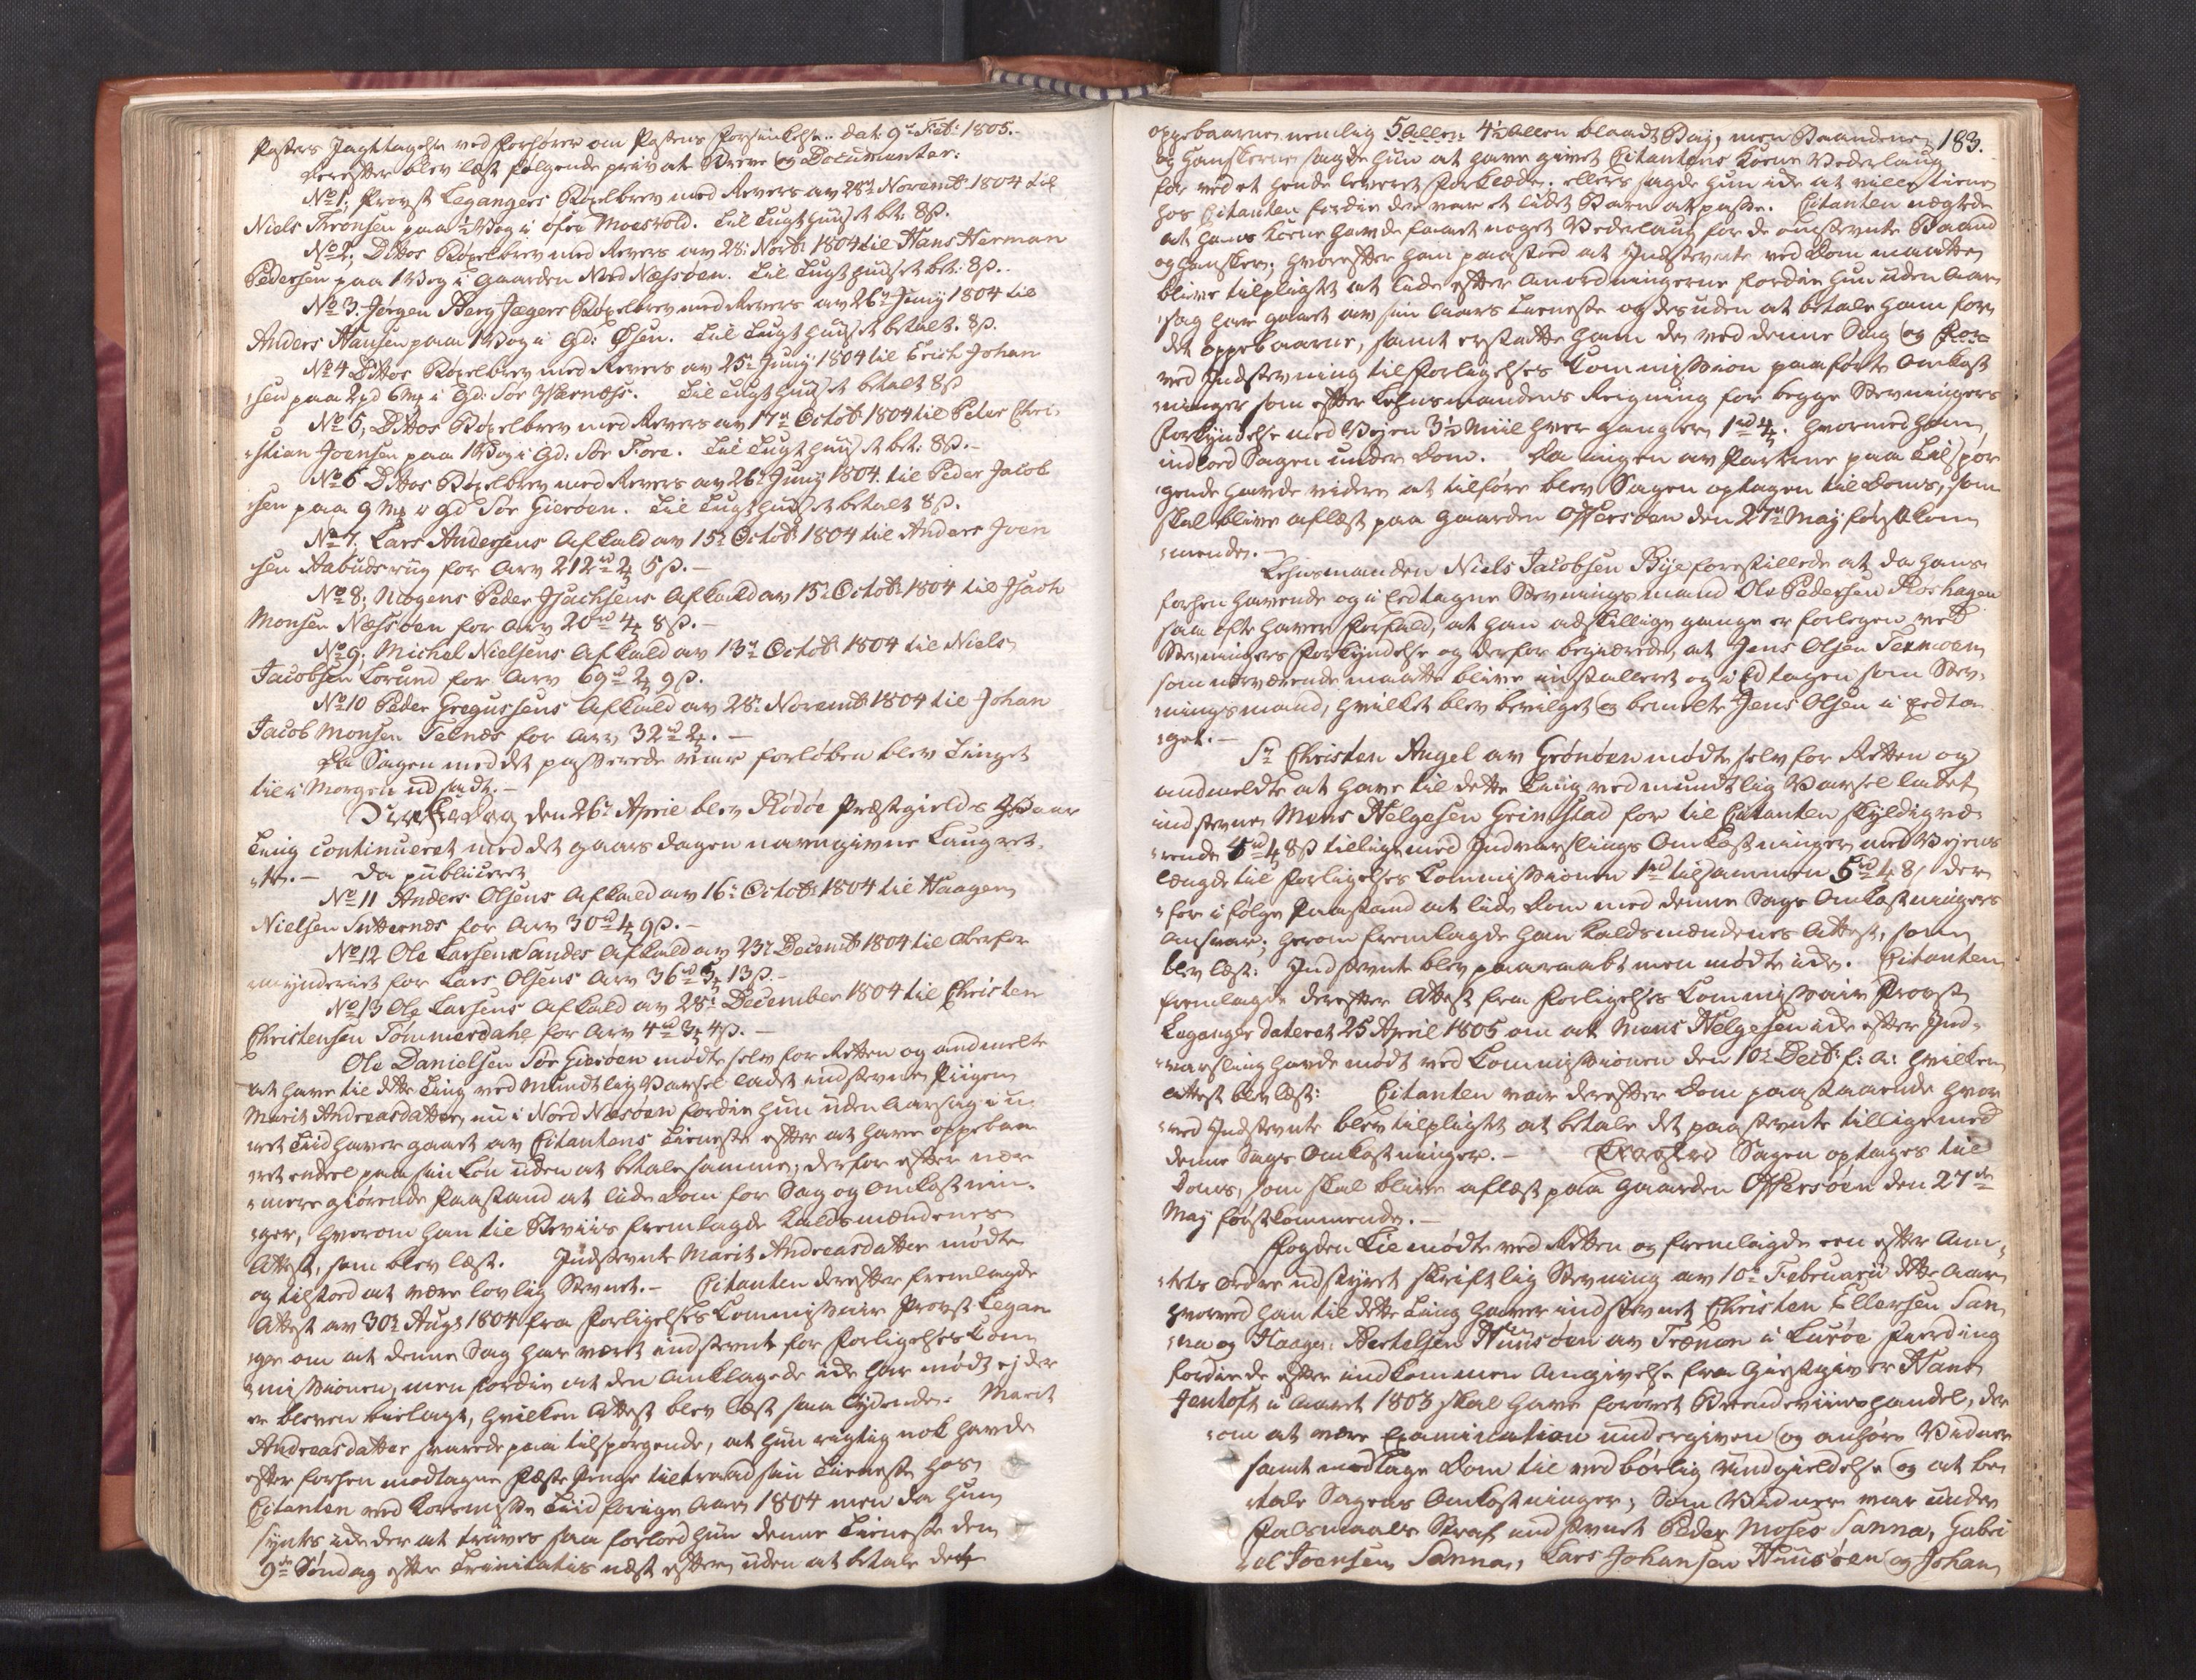 Posters Jagttagelse ved Forhører om Postens Forsinkelse. dat: 9de Feb: 1805.
Derefter blev læst følgende privat Breve og Documenter:
No 1, Provst Legangers Bøxelbrev med Revers av 28de Novembr 1804 til
Niels Thronsen paa ½ Vog i øfre Moesvold. Til Tugthuuset bet: 8ß.
No 2, Dittos Bøxelbrev med Revers av 28: Novbr 1804 til Hans Herman
Pedersen paa 1 Vog i Gaarden Nord Næssøen. Til Tugthuuset bet: 8ß.
No 3. Jørgen Berg Jægers Bøxelbrev med Revers av 26de Junij 1804 til
Anders Hansen paa 1 Vog i Gd: Øsen. Til Tugthuuset betalt. 8ß.
No 4 Dittos Bøxelbrev med Revers av 25de Junij 1804 til Erich Johan
sen paa 2 pd 6 mk i Gd: Sør Værnæss. Til Tugthuuset betalt 8ß
No 5, Dittos Bøxelbrev med Revers av 17de Octobr 1804 til Peder Chri-
stian Joensen paa 1 Vog i Gd: Sør Fore. Til Tugthuuset bet: 8ß.-
No 6 Dittos Bøxelbrev med Revers av 26de Junij 1804. til Peder Jacob
sen paa 9 mk i Gd Sør Gierøen. Til Tugthuuset betalt 8ß.
No 7. Lars Andersens Afkald av 15de Octobr 1804 til Anders Joen
sen Aabudsvug for Arv 212 rd 2 5ß.-
No 8, Mogens Peder Jsachsens Afkald av 15de Octobr 1804 til Jsach
Monsen Næssøen for Arv 20 rd 4 8ß.-
No 9, Michel Nielsens Afkald av 13de Octobr 1804 til Niels
Jacobsen Lorund for Arv 69 rd 2 9ß.
No 10 Peder Gregussens Afkald av 28de Novembr 1804 til Johan
Jacob Monsen Teenæs for Arv 32 rd 2.-
Da Sagen med det passerede var forløben blev Tinget
til i Morgen udsadt.-
Dien den 26de April blev Rødøe Præstgields Vaar
Ting continueret med det gaars dagen navngivne Laugret-
te.- Da publiceret
No 11 Anders Olsens Afkald av 16de Octobr 1804 til Haagen
Nielsen Sætternæs for Arv 30 rd 4 9ß.-
No 12 Ole Larsen Sandes Afkald av 23de Decembr 1804 til Overfor
mynderiet for Lars Olsens Arv 36 rd 5 13ß.-
No 13 Ole Larsens Afkald av 28de December 1804 til Christen
Christensen Tømmerdahl for Arv 4 rd 3 4ß.-
Ole Danielsen Sør Gierøen mødte selv for Retten og andmelte
at have til dette Ting ved Mundtlig Varsel ladet indstevne Piigen
Marit Andreasdatter nu i Nord Næsøen fordie hun uden Aarsag i u-
ret Tiid haver gaaet av Citantens Tieneste efter at have oppebaa
ret endeel paa sin Løn uden at betale samme, derfor efter nær
mere giørende Paastand at lide Dom for Sag og Omkostnin-
ger, hvorom han til Beviis fremlagde Kaldsmændenes
Attest, som blev læst. Indstevnte Marit Andreasdatter mødte
og tilstod at være lovlig Stevnet.- Citanten derefter fremlagde
Attest av 30de Augs 1804 fra Forligelses Commissair Provst Legan
ger om at denne Sag har været indstevnt for Forligelses Com
missionen, men fordie at den Anklagede icke har mødt ej der
er bleven bielagt, hvilken Attest blev læst saa lydende. Marit
Andreasdatter svarede paa tilspørgende, at hun rigtig nok havde
efter forhen modtagne Fæste Penge tiltraad sin Tieneste hos
Citanten ved Korsmisse Tiid forige Aar 1804 men da hun
syntes icke der at trives saa forlod hun denne Tieneste den
9de Søndag efter Trinitatis næst efter, uden at betale det
183.
oppebaarne nemlig 5 Allen 4½ Allen blaadt Baj, men Baandene
og Hanskerne sagde hun at have givet Citantens Kone Vederlaug
for ved et hende leveret Forklæde. ellers sagde hun icke at ville tiene
hos Citanten fordie der var et lidet Barn at passe. Citanten negtede
at hans Kone havde faaet noget Vederlaug for de omstevnte Baand
og Hansker. hvorefter han paastod at Indstevnte ved Dom maatte
blive tilpligtet at lide efter Anordningerne fordie hun uden Aar
sag har gaaet av sin Aars Tieneste og desuden at betale ham for
det oppebaarne, samt erstatte ham de ved denne Sag og for
ved Indstevning til Forligelses Commission paaførte Omkost
ninger som efter Lehnsmandens Reigning for begge Stevningers
Forkyndelse med Vejen 3½ Miil hver gang er 1 rd 4. hvormed han
indlod Sagen under Dom. Da ingen av Parterne paa Tilspør
gende havde videre at tilføre blev Sagen optagen til Doms, som
skal blive aflæst paa Gaarden Offersøen den 27de Maj førstkom
mende.-
Lehnsmanden Niels Jacobsen Bye forestillede at da hans
forhen havende og i Eedtagne Stevningsmand Ole Pedersen Roshagen
saa ofte haver Forfald, at han adskillige gange er forlegen ved
Stevningers Forkyndelse og derfor begierede, at Jens Olsen Tennoen
som nærværende maatte blive installeret og i Ed tagen som Stev-
ningsmand, hvilket blev bevilget og bemelte Jens Olsen i Eed ta
get.-
Sr Christen Angel av Grønøen mødte selv for Retten og
andmeldte at have til dette Ting ved mundtlig Varsel ladet
indstevne Mons Helgesen Grimstad for til Citanten skyldig væ-
rende 4 rd 4 8ß tilligemed Indvarslings Omkostninger med Vejens
længde til Forligelses Commissionen 1 rd tilsammen 5 rd 4 8/ der
for i følge Paastand at lide Dom med denne Sags Omkostningers
Ansvar, herom fremlagde han Kaldsmændenes Attest, som
blev læst. Indstevnte blev paaraabt men mødte icke. Citanten
fremlagde derefter Attest fra Forligelses Commissair Provst
Leganger dateret 25 April 1805 om at Mons Helgesen icke efter Ind-
varsling havde mødt ved Commissionen den 10de Decbr f: a: hvilken
Attest blev læst: Citanten var derefter Dom paastaaende hvor
ved Indstevnte blev tilpligtet at betale det paastevnte tilligemed
denne Sags Omkostninger.- Sagen optages til
Doms, som skal blive aflæst paa Gaarden Offersøen den 27de
Maj førstkommende.-
Fogden Lie mødte ved Retten og fremlagde een efter Am-
tets Ordre udstyret skriftlig Stevning av 10de Februarii dette Aar
hvorved han til dette Ting haver indstevnet Christen Ellersen San
na og Haagen Hertelsen Huusøen av Trænen i Lurøe Fierding
fordie de efter indkommen Angivelse fra Giestgiver Hans
Jentoft i Aaret 1803 skal have forøvet Brændeviinshandel, der
om at være Examination undergiven og anhøre Vidner
samt modtage Dom til ved børlig Undgieldelse og at be
tale Sagens Omkostninger; Som Vidner var under
Falsmaals Straf indstevnt Peder Moses Sanna, Gabri
el Joensen Sanna, Lars Johansen Huusøen og Johan